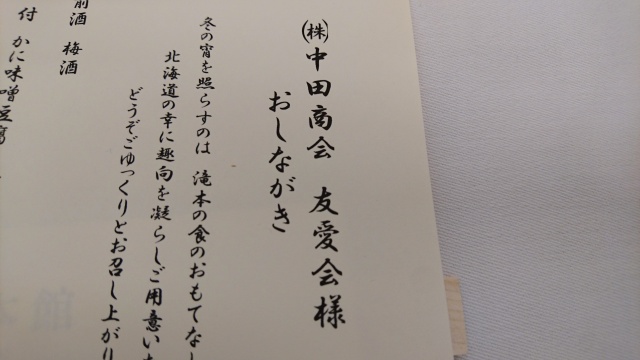 ㈱中田商会 友愛会様
おしながき
冬の宵を照らすのは 滝本の食のおもてなし
北海道の幸に趣向を凝らしご用意いた
どうぞごゆっくりとお召し上がり
前酒 梅酒
付 かに味噌豆腐